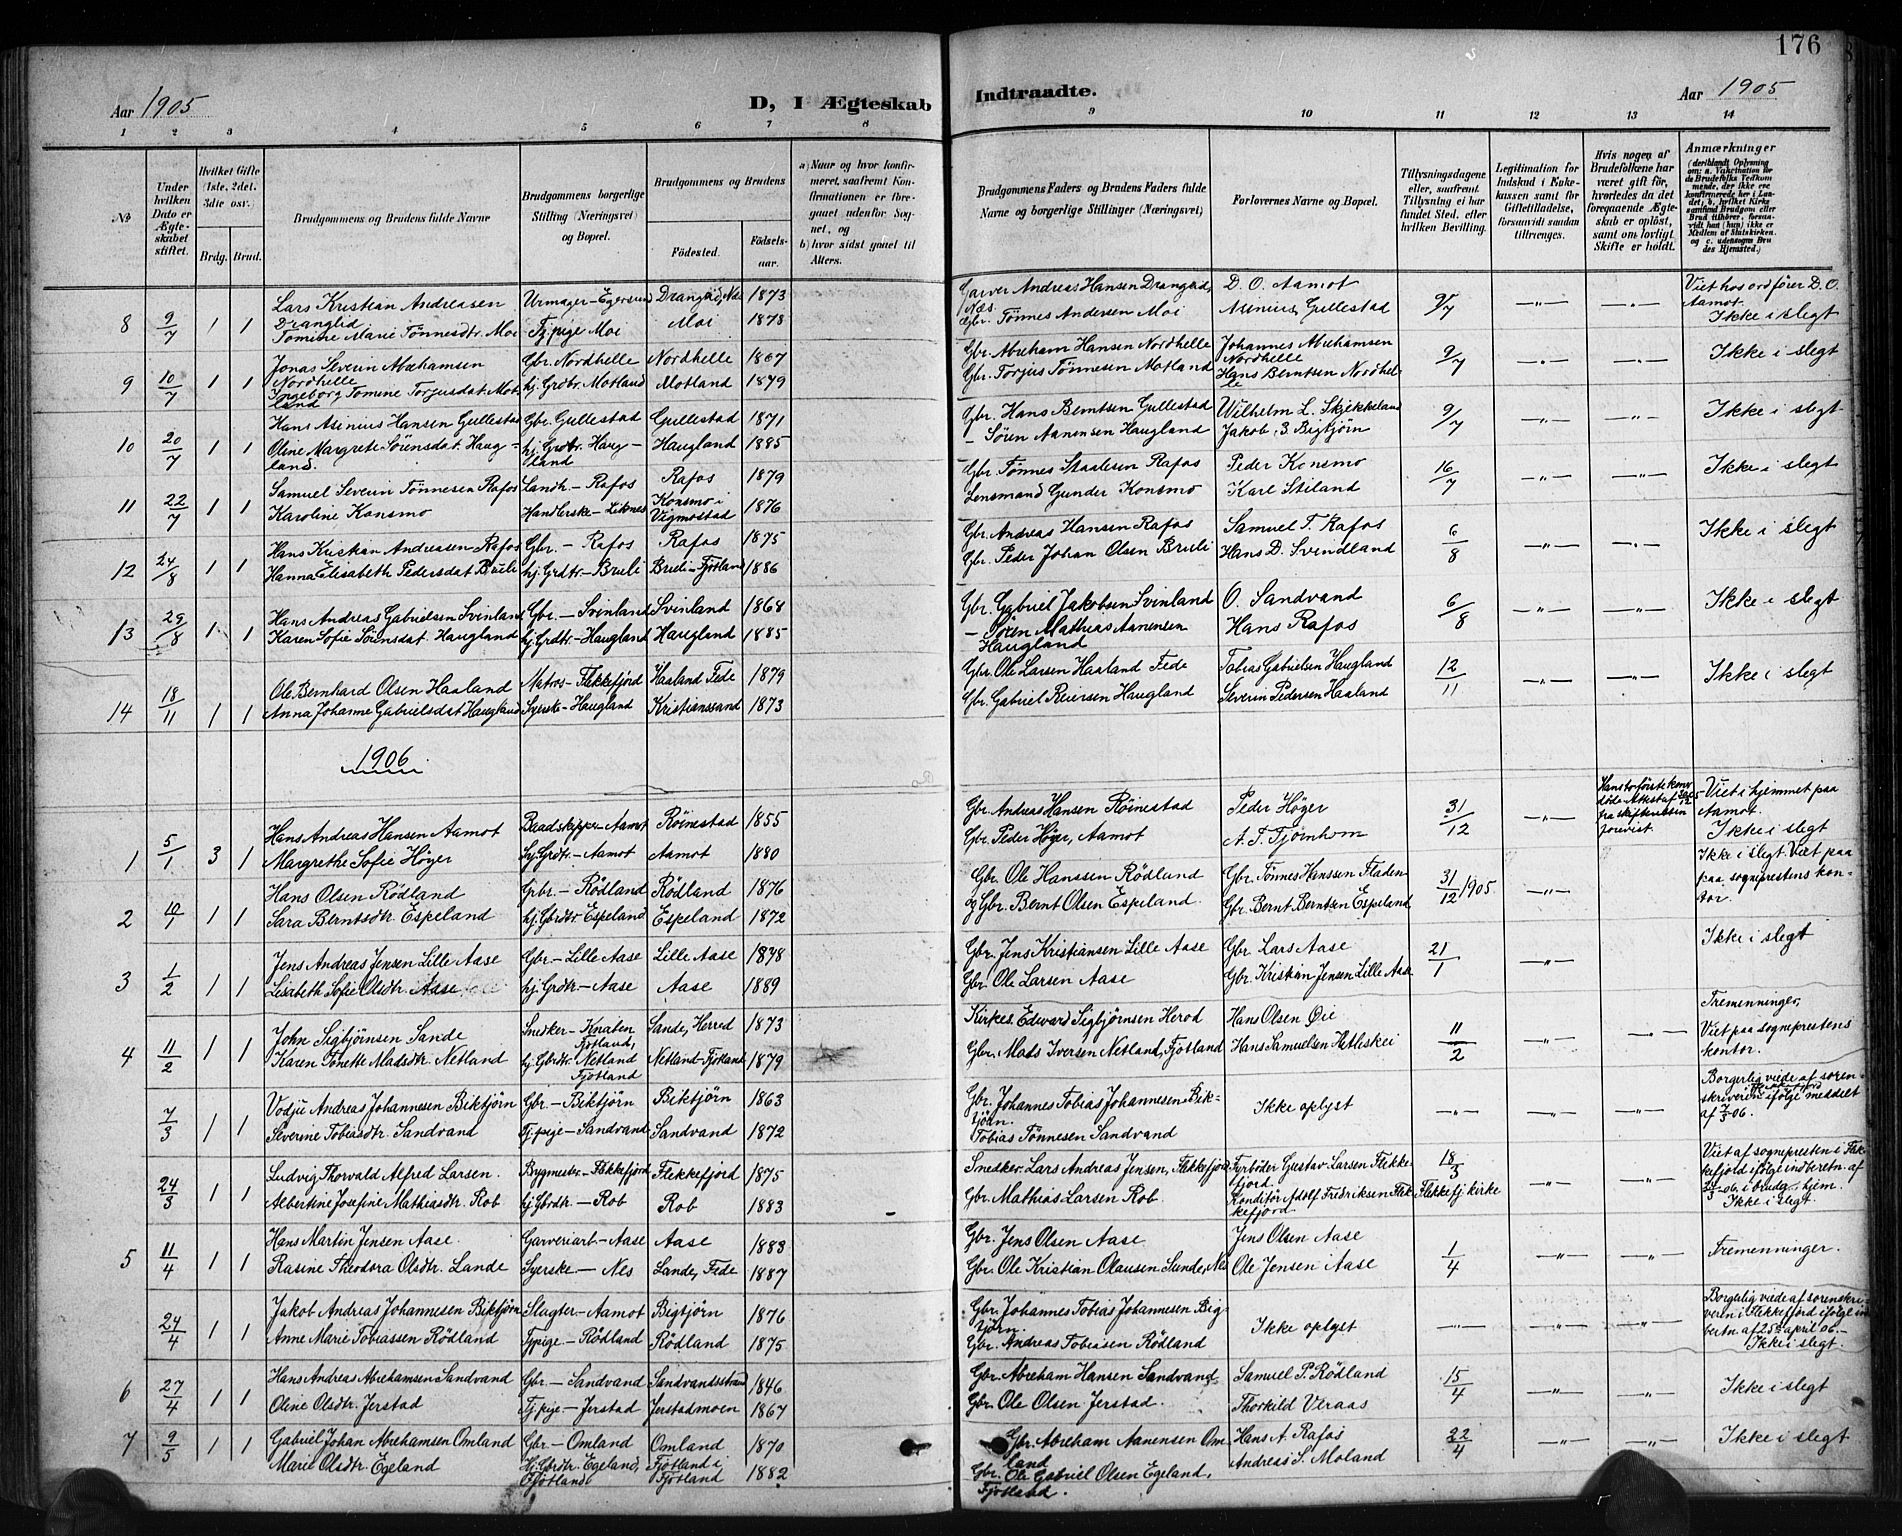 176
Aar 1905
D, I Ægteskab Indtraadte.
Aar 1905
1 2 3 4 5 6 7 8 9 10 11 12 13 14
No
Under hvilken Dato er Ægteskabet stiftet.
Hvilket Gifte (1ste, 2det, 3die osv.)
Brdg. Brud.
Brudgommens og Brudens fulde Navne
Brudgommens borgerlige Stilling (Næringsvei) og Bopæl.
Brudgommens og Brudens
Fødested.
Fødselsaar.
a) Naar og hvor konfirmeret, saafremt Konfirmationen er foregaaet udenfor Sognet, og
b) hvor sidst gaaet til Alters.
Brudgommens Faders og Brudens Faders fulde Navne og borgerlige Stillinger (Næringsvei)
Forlovernes Navne og Bopæl.
Tillysningsdagene eller, saafremt Tillysning ei har fundet Sted, efter hvilken Bevilling.
Legitimation for Indskud i Enkekassen samt for Giftetilladelse, forsaavidt saadan tiltrænges.
Hvis nogen af Brudefolkene har været gift før, hvorledes da det foregaaende Ægteskab er opløst, samt om lovligt Skifte er holdt.
Anmærkninger
8 9/7 1 1 Lars Kristian Andreasen Dranglid Urmager - Egersund Dranglid, Næs 1873 Garver Andreas Hansen Dranglid, Næs. D. O. Aamot 9/7 Viet hos ordfører D. O. Aamot.
Tomine Marie Tønnesdtr. Moi Tj.pige Moi Moi 1878 Gbr. Tønnes Andersen Moi Asinius Gullestad Ikke i slegt
9 10/7 1 1 Jonas Severin Abrahamsen Nordhelle Gbr. Nordhelle Nordhelle 1867 Gbr. Abraham Hansen Nordhelle Johannes Abrahamsen Nordhelle 9/7 Ikke i slegt
Ingeborg Tomine Torjusdat. Motland hj. Grdbr. Motland Motland 1879 Gbr. Torjus Tønnesen Motland Hans Berntsen Nordhelle
10 20/7 1 1 Hans Asinius Hansen Gullestad Gbr. Gullestad Gullestad 1871 Gbr. Hans Berntsen Gullestad Wilhelm L. Skjekkeland 9/7 Ikke i slegt
Oline Margrete Sørensdat. Haugland. hj. Grdbr. Haugland Haugland 1885 - Søren Aanensen Haugland Jakob. J. Bigtjørn
11 22/7 1 1 Samuel Severin Tønnesen Rafos Landh. - Rafos Rafos 1879 Gbr. Tønnes Staalesen Rafos Peder Konsmo 16/7 Ikke i slegt
Karoline Konsmo Handlerske - Liknes Konsmo i Vigmostad 1876 Lensmand Gunder Konsmo Karl Stiland
12 24/8 1 1 Hans Kristian Andreasen Rafos Gbr. - Rafos Rafos 1875 Gbr. Andreas Hansen Rafos Samuel T. Rafos 6/8 Ikke i slegt
Hanna Elisabeth Pedersdat. Bruli hj. Grdtr. - Bruli Bruli - Fjotland 1886 Gbr. Peder Johan Olsen Bruli Hans D. Svindland
13 29/8 1 1 Hans Andreas Gabrielsen Svinland Gbr. - Svinland Svinland 1868 Gbr. Gabriel Jakobsen Svinland O. Sandvand 6/8 Ikke i slegt
Karen Sofie Sørensdat. Haugland hj. Grdtr. - Haugland Haugland 1885 - Søren Mathias Aanensen Haugland Hans Rafos
14 18/11 1 1 Ole Bernhard Olsen Haaland Matros - Flekkefjord Haaland Fede 1879 Gbr. Ole Larsen Haaland Fede Tobias Gabrielsen Haugland 12/11 Ikke i slegt
Anna Johanne Gabrielsdat. Haugland Syersk - Haugland Kristianssand 1873 Gbr. Gabriel Reiersen Haugland Severin Pedersen Haaland
1906
1 5/1 3 1 Hans Andreas Hansen Aamot Baadskipper - Aamot Røinestad 1855 Gbr. Andreas Hansen Røinestad Peder Høyer 31/12 Viet i hjemmet paa Aamot.
Margrethe Sofie Høyer hj. Grdtr. - Aamot Aamot 1880 Gbr. Peder Høyer, Aamot A. T. Tjørnhom Ikke i slegt
2 10/1 1 1 Hans Olsen Rødland Grbr. - Rødland Rødland 1876 Gbr. Ole Hanssen Rødland Gbr. Tønnes Hanssen Fladen 31/12 1905 Ikke i slegt. Viet paa sogneprestens kontor.
Sara Berntsdtr. Espeland hj. Gbrdtr Espeland Espeland 1872 Gbr. Bernt Olsen Espeland. Gbr. Bernt Berntsen Espeland
3 1/2 1 1 Jens Andreas Jensen Lille Aase Gbr. - Lille Aase Lille Aase 1878 Gbr. Jens Kristiansen Lille Aase Gbr. Lars Aase 21/1 Ikke i slegt
Lisabeth Sofie Olsdtr. Aase hj. Grdtr. - Aase Aase 1889 Gbr. Ole Larsen Aase Gbr. Kristian Jensen Lille Aase
4 11/2 1 1 John Sigbjørnsen Sande Snedker - Knaben Fjotland, Sande, Herred 1873 Kirkes. Edward Sigbjørnsen Herod Hans Olsen Øie 11/2 Tremenninger, Viet paa sogneprestens kontor.
Karen Tonette Madsdtr. Netland hj. Gbrdtr. Netland Fjotland Netland - Fjotland 1879 Gbr. Mads Iversen Netland, Fjotland Hans Samuelsen Hatleskei
7/3 1 1 Vodju Andreas Johannesen Biktjørn Gbr. - Biktjørn Biktjørn 1863 Gbr. Johannes Tobias Johannesen Biktjørn. Ikke oplyst Borgerlig viede af sorenskriveren ifølge meddelt af 7/3 06.
Severine Tobiasdtr. Sandvand Tj.pige - Sandvand Sandvand 1872 Tobias Tønnesen Sandvand
24/3 1 1 Ludvig Thorvald Alfred Larsen. Bygmester - Flekkefjord Flekkefjord 1875 Snedker. Lars Andreas Jensen, Flekkefjord Fyrbøder Gustav Larsen Flekkefjord 18/3 Flekkefj. kirke Viet af sognepresten i Flekkefjord ifølge indberetn. af 24/3 06. i bruds hjem. Ikke i slegt.
Albertine Josefine Mathiasdtr. Rob hj. Gbrdtr. - Rob Rob 1883 Gbr. Mathias Larsen Rob. Konditor Adolf Fredriksen Flekkefjord
5 11/4 1 1 Hans Martin Jensen Aase. Garveriarb - Aase Aase 1883 Gbr. Jens Olsen Aase Jens Olsen Aase 1/4 Tremenninger.
Rasine Theodora Olsdtr. Lande Syerske - Nes Lande, Fede 1887 Gbr. Ole Kristian Olausen Lande, Nes Ole Jensen Aase
24/4 1 1 Jakob Andreas Johannesen Biktjørn Slagter - Aamot Bigtjørn 1876 Gbr. Johannes Tobias Johannesen Bigtjørn. Ikke oplyst Borgerlig viede af sorenskriveren i Flekkefjord ifølge indbertn. af 25de april 06. - Ikke i slegt.
Anne Marie Tobiassen Rødland Tj.pige - Rødland Rødland 1875 Gbr. Andreas Tobiasen Rødland
6 27/4 1 1 Hans Andreas Abrahamsen Sandvand Gbr. - Sandvand Sandvandsstrand 1846 Gbr. Abraham Hansen Sandvand. Samuel P. Rødland 15/4 Ikke i slegt
Oline Olsdtr. Jerstad Tj.pige - Jerstad Jerstadmoen 1867 Gbr. Ole Olsen Jerstad. Thorkild Veraas
7 9/5 1 1 Gabriel Johan Abrahamsen Omland Gbr. - Omland Omland 1870 Gbr. Abraham Aanensen Omland Hans A. Rafos 22/4 Ikke i slegt
Marie Olsdtr. Egeland Hj. Gbrdtr. Egeland, Fjotland Fjotland i Fjotland 1882 Gbr. Ole Gabriel Olsen Egeland, Fjotland. Andreas S. Moland